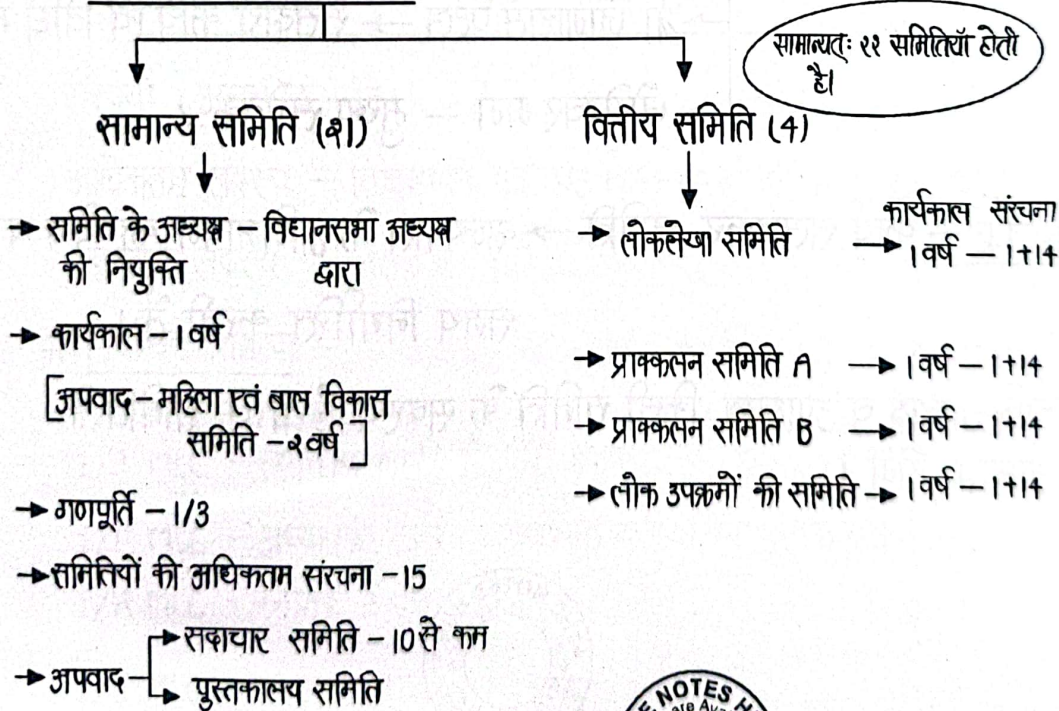 सामान्यतः २२ समितियाँ होती
है।
सामान्य समिति (२1)
वित्तीय समिति (4)
→ समिति के अध्यक्ष – विधानसभा अध्यक्ष
की नियुक्ति द्वारा
→ कार्यकाल – 1 वर्ष
[अपवाद – महिला एवं बाल विकास
समिति – २ वर्ष]
→ गणपूर्ति – 1/3
→ समितियों की अधिकतम संरचना – 15
→ अपवाद
→ सदाचार समिति – 10 से कम
→ पुस्तकालय समिति
कार्यकाल संरंचना
→ लोकलेखा समिति → 1 वर्ष – 1+14
→ प्राक्कलन समिति A → 1 वर्ष – 1+14
→ प्राक्कलन समिति B → 1 वर्ष – 1+14
→ लोक उपक्रमों की समिति → 1 वर्ष – 1+14
NOTES